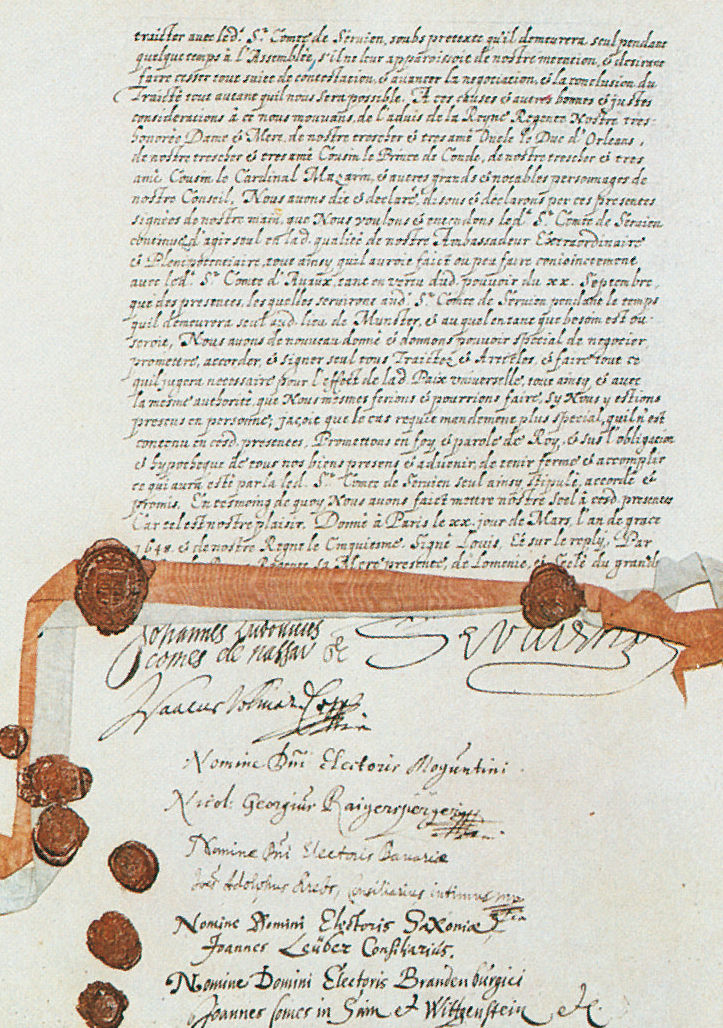 traicter avec led. Sr. Comte de Servien, soubs pretexte qu'il demeurera seul pendant
quelque temps à l'Assemblée, s'il ne leur apparoissoit de nostre intention, & desirant
faire cesser tout suiet de contestation, & avancer la negociation, & la conclusion du
Traicté tout autant quil nous sera possible. A ces causes & autres bonnes & justes
considerations à ce nous mouvans, de l'aduis de la Reyne Regente Nostre tres-
honorée Dame & Mere, de nostre trescher & tresamé Oncle le Duc d'Orleans,
de nostre trescher & tresamé Cousin le Prince de Condé, de nostre trescher & tres
amé Cousin le Cardinal Mazarin, & autres grands & notables personnages de
nostre Conseil, Nous avons dit & declaré, disons & declarons par ces presentes
signées de nostre main, que Nous voulons & entendons led. Sr. Comte de Servien
continue d'agir seul en lad. qualité de nostre Ambassadeur Extraordinaire
& Plenipotentiaire, tout ainsy quil auroit faict ou peu faire conjoinctement
avec led. Sr. Comte d'Avaux, tant en vertu dud. pouvoir du xx. Septembre,
que des presentes, lesquelles serviront aud. Sr. Comte de Servien pendant le temps
quil demeurera seul aud. lieu de Munster, & auquel entant que besoin est ou
seroit, Nous avons de nouveau donné & donnons pouvoir special de negocier,
promettre, accorder, & signer seul tous Traictez & Articles, & faire tout ce
quil jugera necessaire pour l'effect de lad. Paix universelle, tout ainsy, & avec
la mesme authorité, que Nous mesmes ferions & pourrions faire, sy Nous y estions
presens en personne, jaçoit que le cas requit mandement plus special, quil n'est
contenu en cesd. presentes. Promettons en foy & parole de Roy, & sus l'obligation
& hypotheque de tous nos biens presens & advenir, de tenir ferme & accomplir
ce qui aura esté par la led. Sr. Comte de Servien seul ainsy stipulé, accordé &
promis. En tesmoing de quoy Nous avons faict mettre nostre Seel à cesd. presentes
Car tel est nostre plaisir. Donné à Paris le xx. jour de Mars, l'an de grace
1648. & de nostre Regne le Cinquiesme. Signé Louis, Et sur le reply, Par
la Reyne Regente sa Mere presente, de Lomenie, & Seelé du grand
Johannes Ludovicus
comes de Nassau
Servien
Isaacus Volmar
Nomine Dni Electoris Moguntini
Nicol: Georgius Raigersperger
Nomine Dni Electoris Bavariæ
Joan Adolphus Krebs, Consiliarius intimus
Nomine Domini Electoris Saxoniæ
Joannes Leüber Consiliarius.
Nomine Domini Electoris Brandenburgici
Joannes Comes in Sain et Wittgenstein etc.